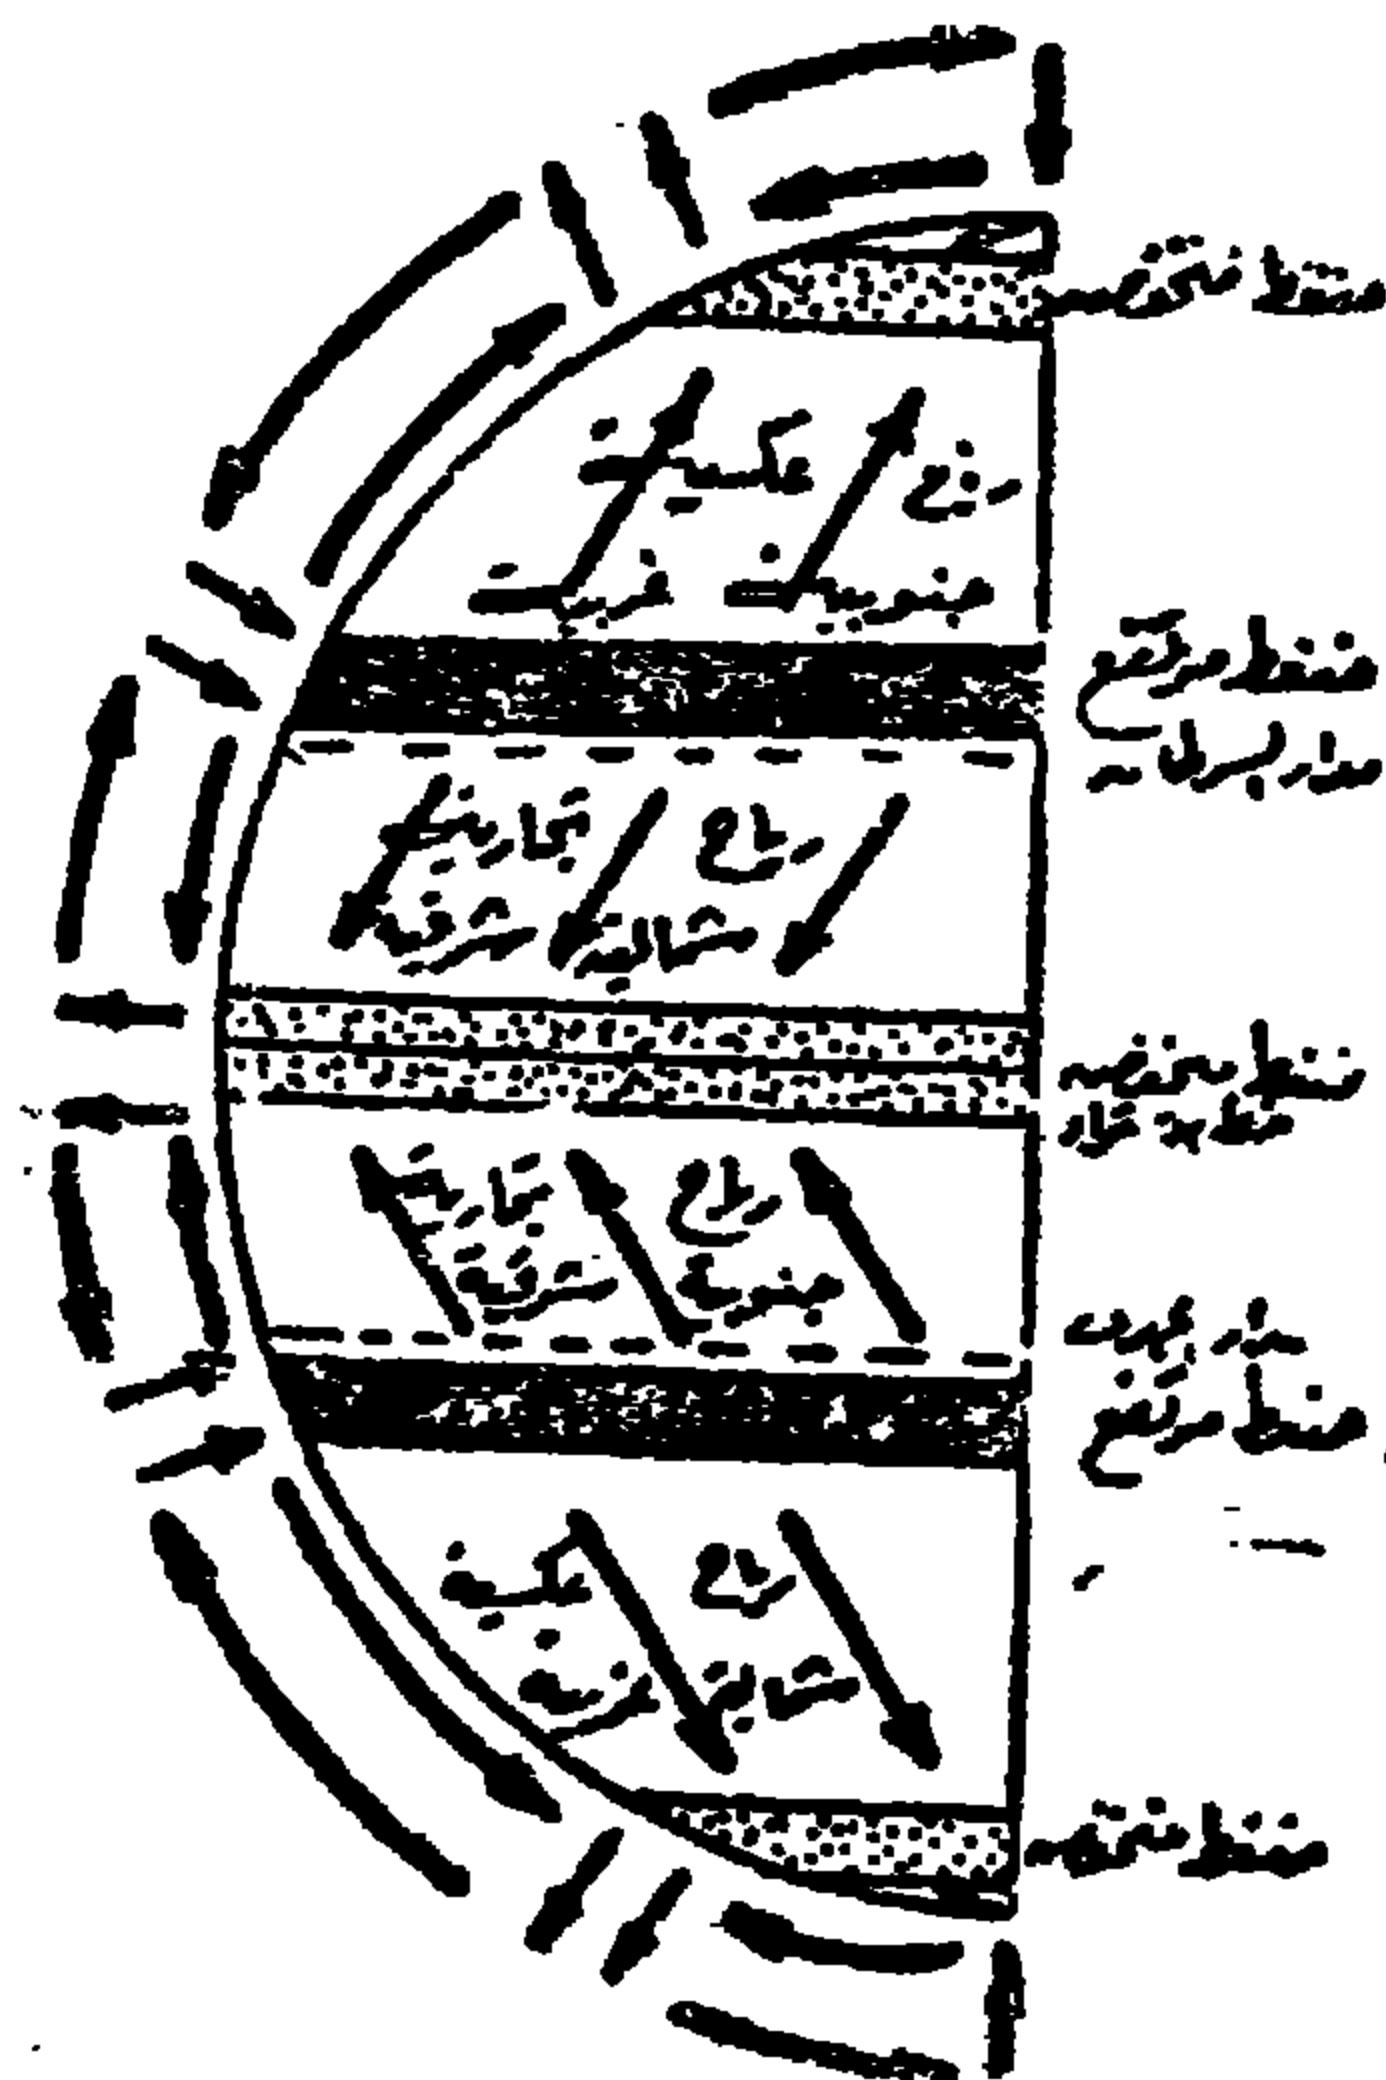 ضغط منخفض
رياح عكسية
جنوبية غربية
ضغط مرتفع
مدار السرطان
رياح تجارية
شمالية شرقية
ضغط منخفض
رياح تجارية
جنوبية شرقية
مدار الجدى
ضغط مرتفع
رياح عكسية
شمالية غربية
ضغط منخفض